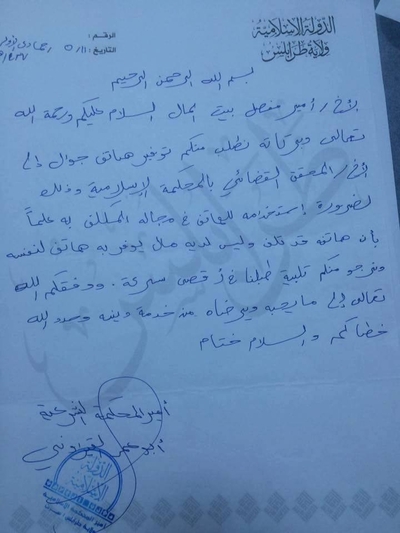 الدولة الإسلامية
ولاية طرابلس
الرقم :
التاريخ :
بسم الله الرحمن الرحيم
الأخ / أمير مفصل بيت المال السلام عليكم ورحمة الله
تعالى وبركاته نطلب منكم توفير هاتف جوال إلى
الأخ / المحقق القضائي بالمحكمة الإسلامية وذلك
لضرورة إستخدامه للهاتف في مجاله المكلف به علماً
بأن هاتفه قد تلف وليس لديه مال يوفر به هاتف لنفسه
ونرجو منكم تلبية طلبنا في أقصى سرعة . ووفقكم الله
تعالى إلى ما يحبه ويرضاه من خدمة دينه وسدد الله
خطاكم والسلام ختام
أمير المحكمة الشرعية
أبو عمر
الدولة
الإسلامية